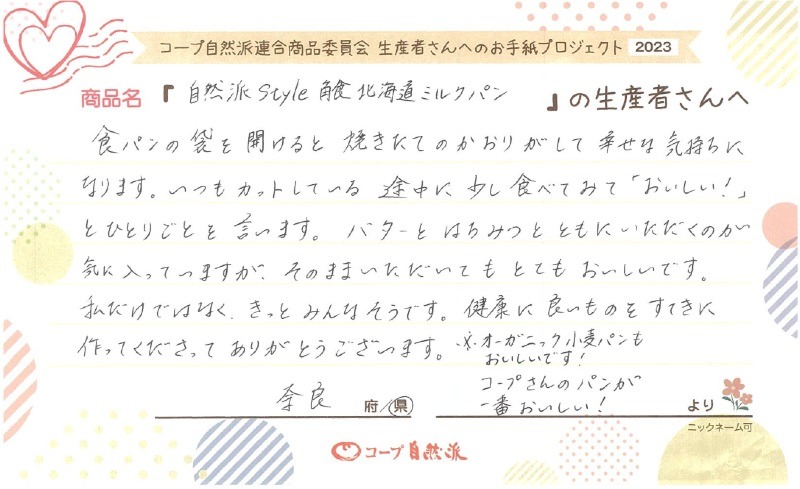 コープ自然派連合商品委員会 生産者さんへのお手紙プロジェクト 2023
商品名『自然派Style 角食 北海道ミルクパン』の生産者さんへ
食パンの袋を開けると焼きたてのかおりがして幸せな気持ちに
なります。いつもカットしている途中に少し食べてみて「おいしい!」
とひとりごとを言います。バターとはちみつとともにいただくのが
気に入っていますが、そのままいただいてもとてもおいしいです。
私だけではなく、きっとみんなそうです。健康に良いものをすてきに
作ってくださってありがとうございます。※オーガニック小麦パンも
おいしいです!
コープさんのパンが
一番おいしい!
奈良 府/県 より
ニックネーム可
コープ自然派